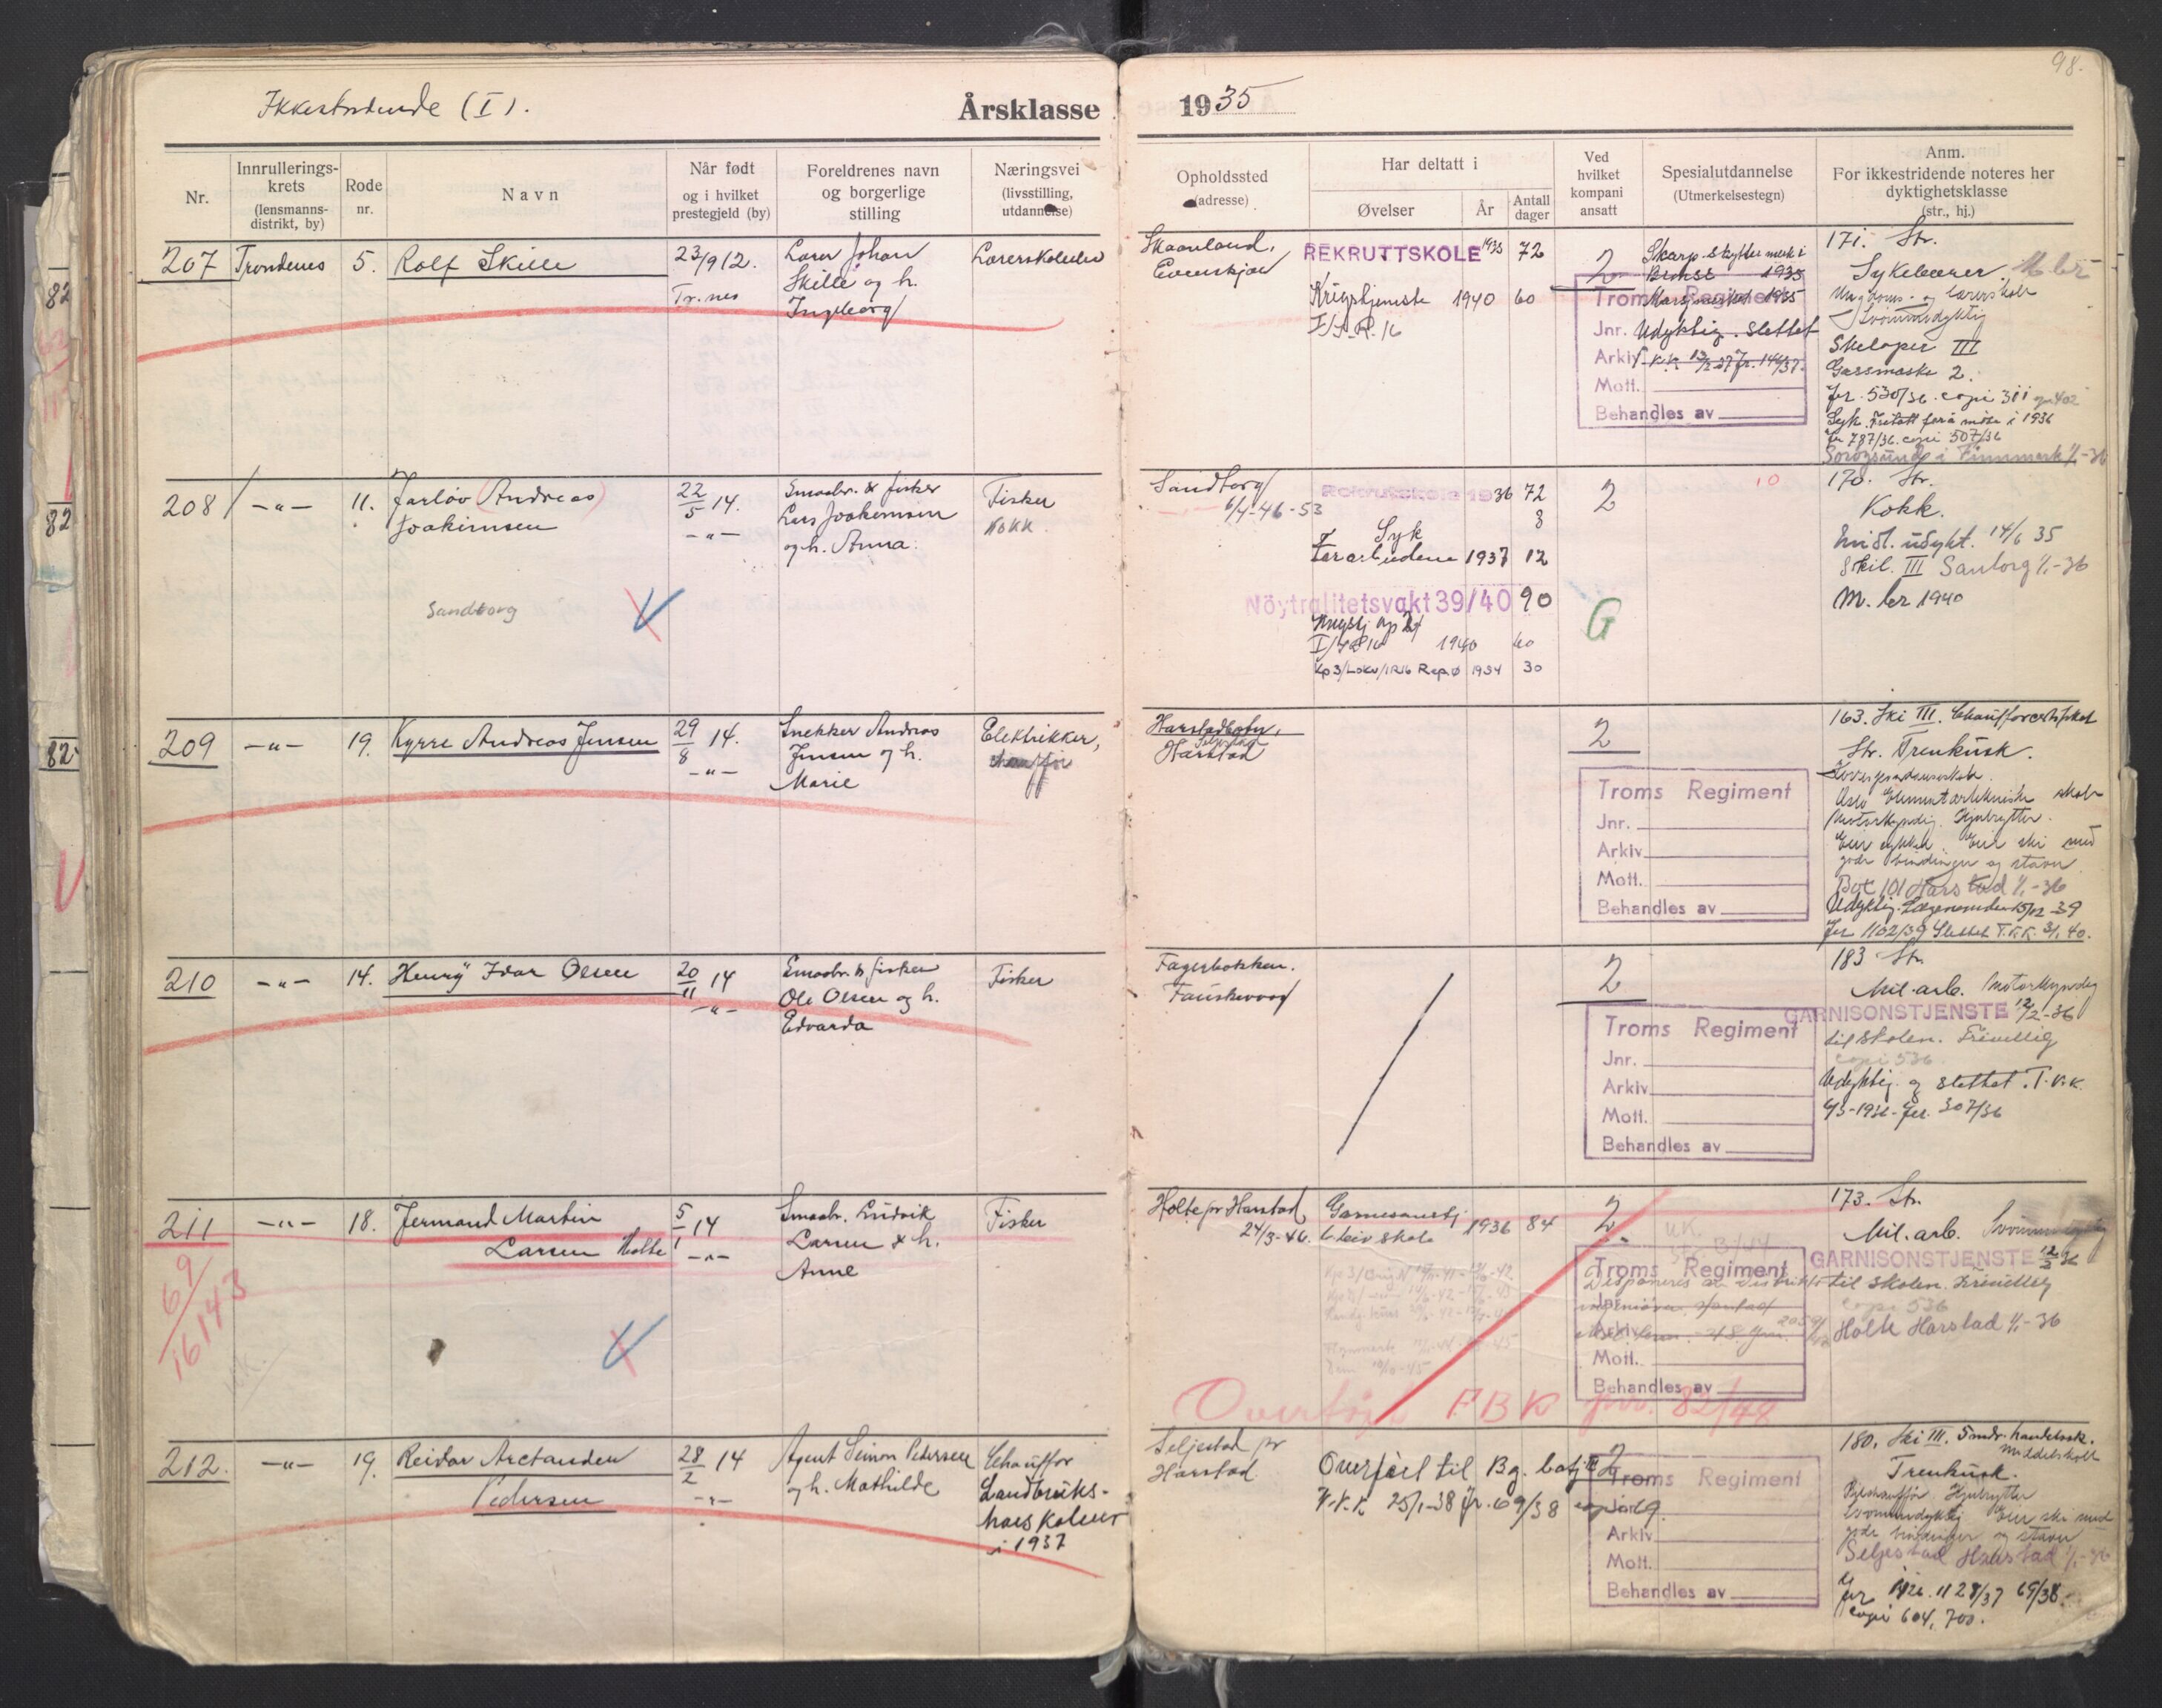 98.
Ikkestridende (I).
Årsklasse 1935
Nr.
Innrullerings-
krets
(lensmanns-
distrikt, by)
Rode
nr.
Navn
Når født
og i hvilket
prestegjeld (by)
Foreldrenes navn
og borgerlige
stilling
Næringsvei
(livsstilling,
utdannelse)
Opholdssted
(adresse)
Har deltatt i
Øvelser
År
Antall
dager
Ved
hvilket
kompani
ansatt
Spesialutdannelse
(Utmerkelsestegn)
Anm.
For ikkestridende noteres her
dyktighetsklasse
(str., hj.)
207 Trondenes 5. Rolf Skille
23/9 12.
Tr.nes
Lærer Johan
Skille og h.
Ingeborg
Lærerskoleelev
Skaanland,
Evenskjær
REKRUTTSKOLE 1935 72
Krigstjeneste 1940 60
2
Skarp.skyttermerke i
Bronse 1935
Marsjmerket 1935
Troms Regiment
Jnr. Udyktig. Slettet
Arkiv
Mott.
Behandles av
171. Str.
Sykebærer.
Ungdoms- og lærerskole
Svømmedyktig
Skeløper III
Gassmaske 2.
Jnr. 530/36. copi 311
Syk. Fritatt for å møte i 1936
Jnr 787/36. copi 507/36
Sørøysund i Finnmark 1/1-36
208 -"- 11. Jarlöv (Andreas)
Joakimsen
22/5 14.
-"-
Smaabr. & fisker
Lars Joakimsen
og h. Anna.
Fisker
Kokk
Sandtorg
Sandtorg
6/4-46-53
Rekruttskole 1936 72
8
Syk
1937 12
Nöytralitetsvakt 39/40 90
1940 60
Kp3/Lokv/IR16 Rep.Ø 1954 30
2
G
10
170. Str.
Kokk.
Midl. udykt. 14/6 35
Skil. III Santorg 1/1-36
M. br 1940
209 -"- 19. Kyrre Andreas Jensen
29/8 14.
-"-
Snekker Andreas
Jensen og h.
Marie
Elektrikker,
chauffør
Harstadbotn,
Seljestad
Harstad
2
Troms Regiment
Jnr.
Arkiv
Mott.
Behandles av
163. Ski III. Chaufførcertifikat
Str. Trenkusk.
Oslo Elementærtekniske skole
Motorkyndig. Hjulrytter.
Eier sykkel. Eier ski med
gode bindinger og staver
Box 101 Harstad 1/1-36
Udyktig. Lægenemnden 15/12 39
Jnr 1102/39 Slettet T.K.K. 3/1 40.
210 -"- 14. Henry Idar Olsen
20/11 14
-"-
Smaabr. & fisker
Ole Olsen og h.
Edvarda
Fisker
Fagerbakken.
Fauskevaag
2
Troms Regiment
Jnr.
Arkiv
Mott.
Behandles av
183 Str.
Mil. arb. Motorkyndig
GARNISONSTJENSTE 12/2-36
til skolen. Frivillig
copi 536
Udyktig og slettet. T.K.K.
4/3-1936. Jnr. 307/36
211 -"- 18. Jermand Martin
Larsen Holte
5/1 14
-"-
Smaabr. Ludvik
Larsen & h.
Anne
Fisker
69/16143
Holte pr Harstad
24/3-46.
Garnisonstj
1936 84
2.
U.K.
Troms Regiment
Jnr.
Arkiv
Mott.
Behandles av
173. Str.
Mil. arb.
GARNISONSTJENSTE 12/2 36
til skolen. Frivillig
copi 536
Holte Harstad 1/1-36
Overført FBK jnr. 82/48
212. -"- 19. Reidar Arctander
Pedersen
28/2 14
-"-
Agent Simon Pedersen
og h. Mathilde
Chauffør
Landbruks-
høiskolen
i 1937
Seljestad pr
Harstad
Overført til Bg. batj III
V.V.K. 25/1-38 Jr. 69/38 copi 19.
2
Troms Regiment
Jnr.
Arkiv
Mott.
Behandles av
180. Ski III. 5 mdr. handelssk.
Middelskole
Trenkusk.
Hjulrytter
Svømmedyktig Eier ski med
gode bindinger og staver
Seljestad Harstad 1/1-36
Jnr 1128/37 69/38.
copi 604, 700.
82
82
82